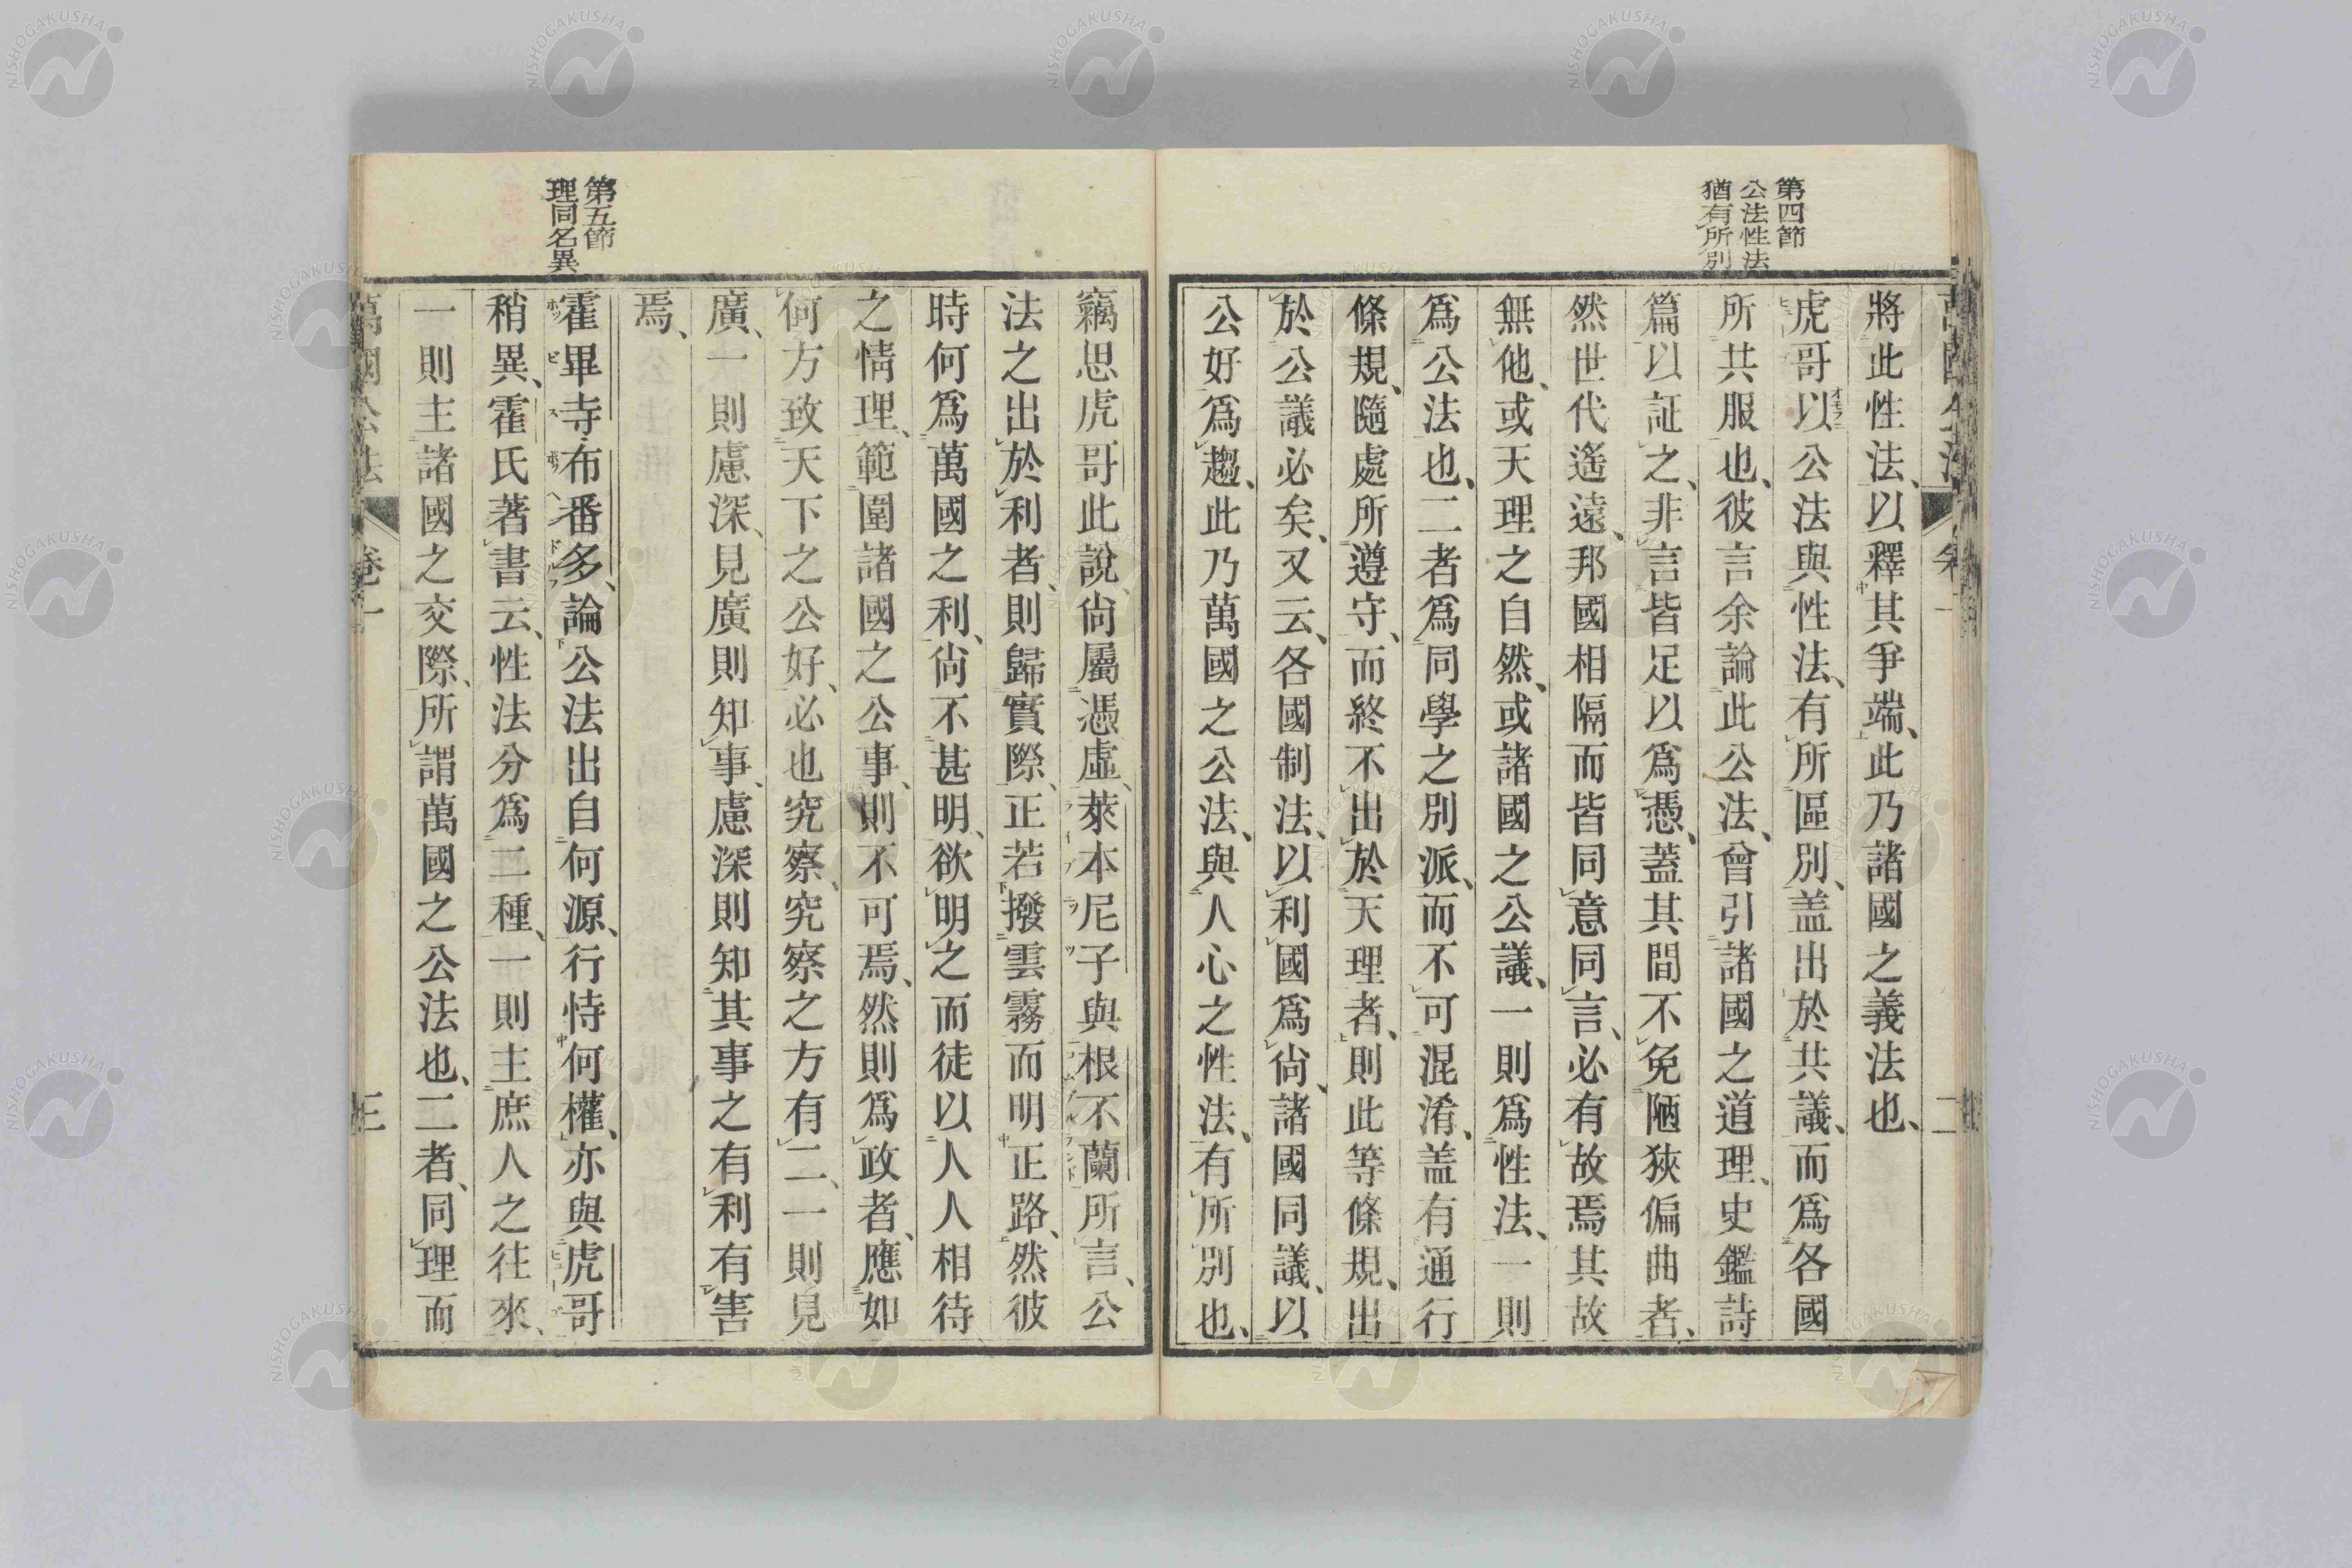 第四節
公法性法
猶有所別
將此性法、以釋其爭端、此乃諸國之義法也、
虎哥以公法與性法、有所區別、盖出於共議、而爲各國
所共服也、彼言余論此公法、曾引諸國之道理、史鑑詩
篇以証之、非言皆足以爲憑、蓋其間不免陋狹偏曲者、
然世代遙遠、邦國相隔而皆同意同言、必有故焉其故
無他、或天理之自然、或諸國之公議、一則爲性法、一則
爲公法也、二者爲同學之別派、而不可混淆、盖有通行
條規、隨處所遵守、而終不出於天理者、則此等條規、出
於公議必矣、又云、各國制法、以利國爲尙、諸國同議、以
公好爲趨、此乃萬國之公法、與人心之性法、有所別也、
竊思虎哥此說、尙屬憑虛、萊本尼子與根不蘭所言、公
法之出於利者、則歸實際、正若撥雲霧而明正路、然彼
時何爲萬國之利、尙不甚明、欲明之而徒以人人相待
之情理、範圍諸國之公事、則不可焉、然則爲政者、應如
何方致天下之公好、必也究察、究察之方有二、一則見
廣、一則慮深、見廣則知事、慮深則知其事之有利有害
焉、
第五節
理同名異
霍畢寺布番多、論公法出自何源、行恃何權、亦與虎哥
稍異、霍氏著書云、性法分爲二種、一則主庶人之往來、
一則主諸國之交際、所謂萬國之公法也、二者、同理而
萬國公法
卷一
三